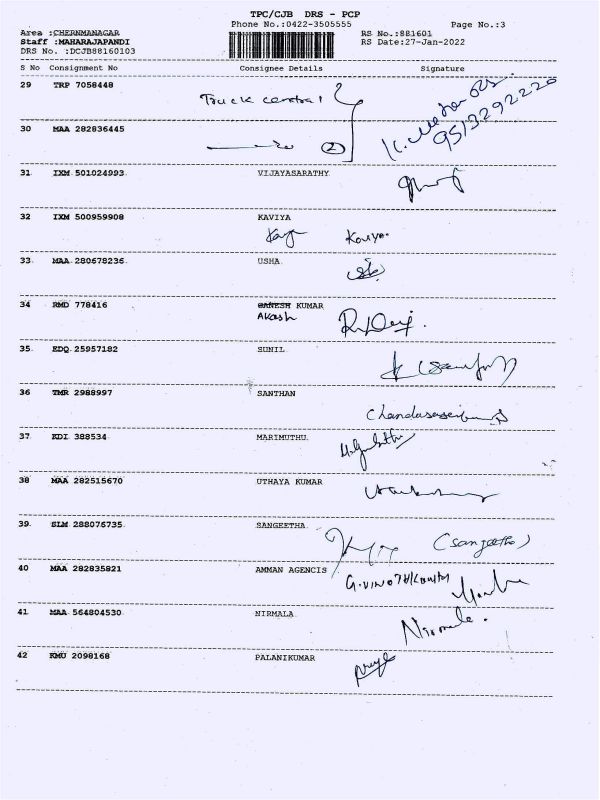 TPC/CJB DRS - PCP
Phone No.:0422-3505555 Page No.:3
Area :CHERNMANAGAR RS No.:881601
Staff :MAHARAJAPANDI RS Date:27-Jan-2022
DRS No. :DCJB88160103
S No Consignment No Consignee Details Signature
29 TRP 7058448
Truck central
9513292220
30 MAA 282836445
2
31 IXM 501024993 VIJAYASARATHY
32 IXM 500959908 KAVIYA
Kaviya.
33 MAA 280678236 USHA
34 RMD 778416 GANESH KUMAR
Akash
35 EDQ 25957182 SUNIL
36 TMR 2988997 SANTHAN
37 KDI 388534 MARIMUTHU
38 MAA 282515670 UTHAYA KUMAR
39 SLM 288076735 SANGEETHA
(Sangeetha)
40 MAA 282835821 AMMAN AGENCIS
41 MAA 564804530 NIRMALA
Nirmala.
42 KMU 2098168 PALANIKUMAR